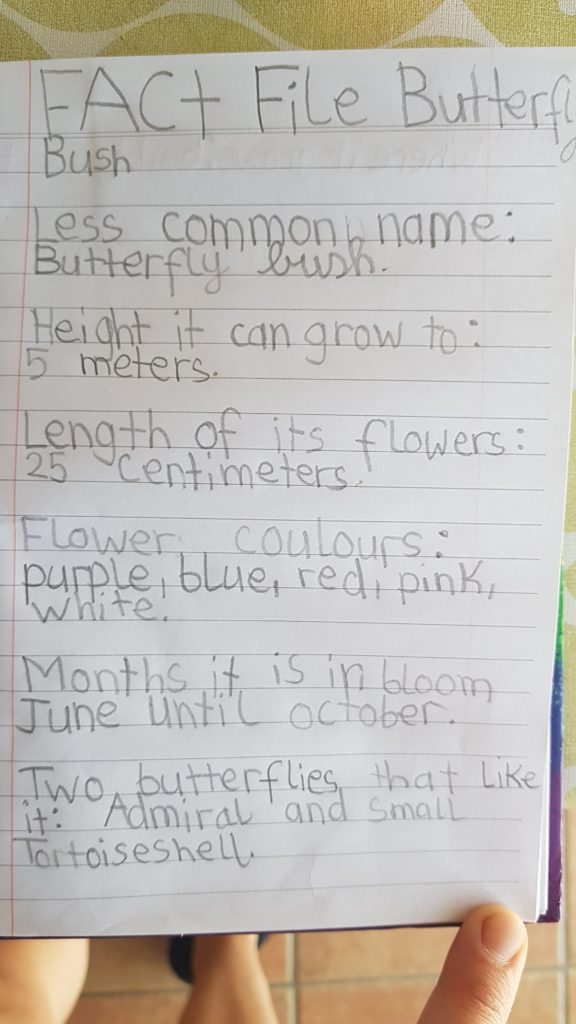 FACt File Butterfly
Bush
Less common name:
Butterfly bush.
Height it can grow to:
5 meters.
Length of its flowers:
25 centimeters.
Flower coulours:
purple, blue, red, pink,
white.
Months it is in bloom
June until october.
Two butterflies that like
it: Admiral and small
Tortoiseshell.